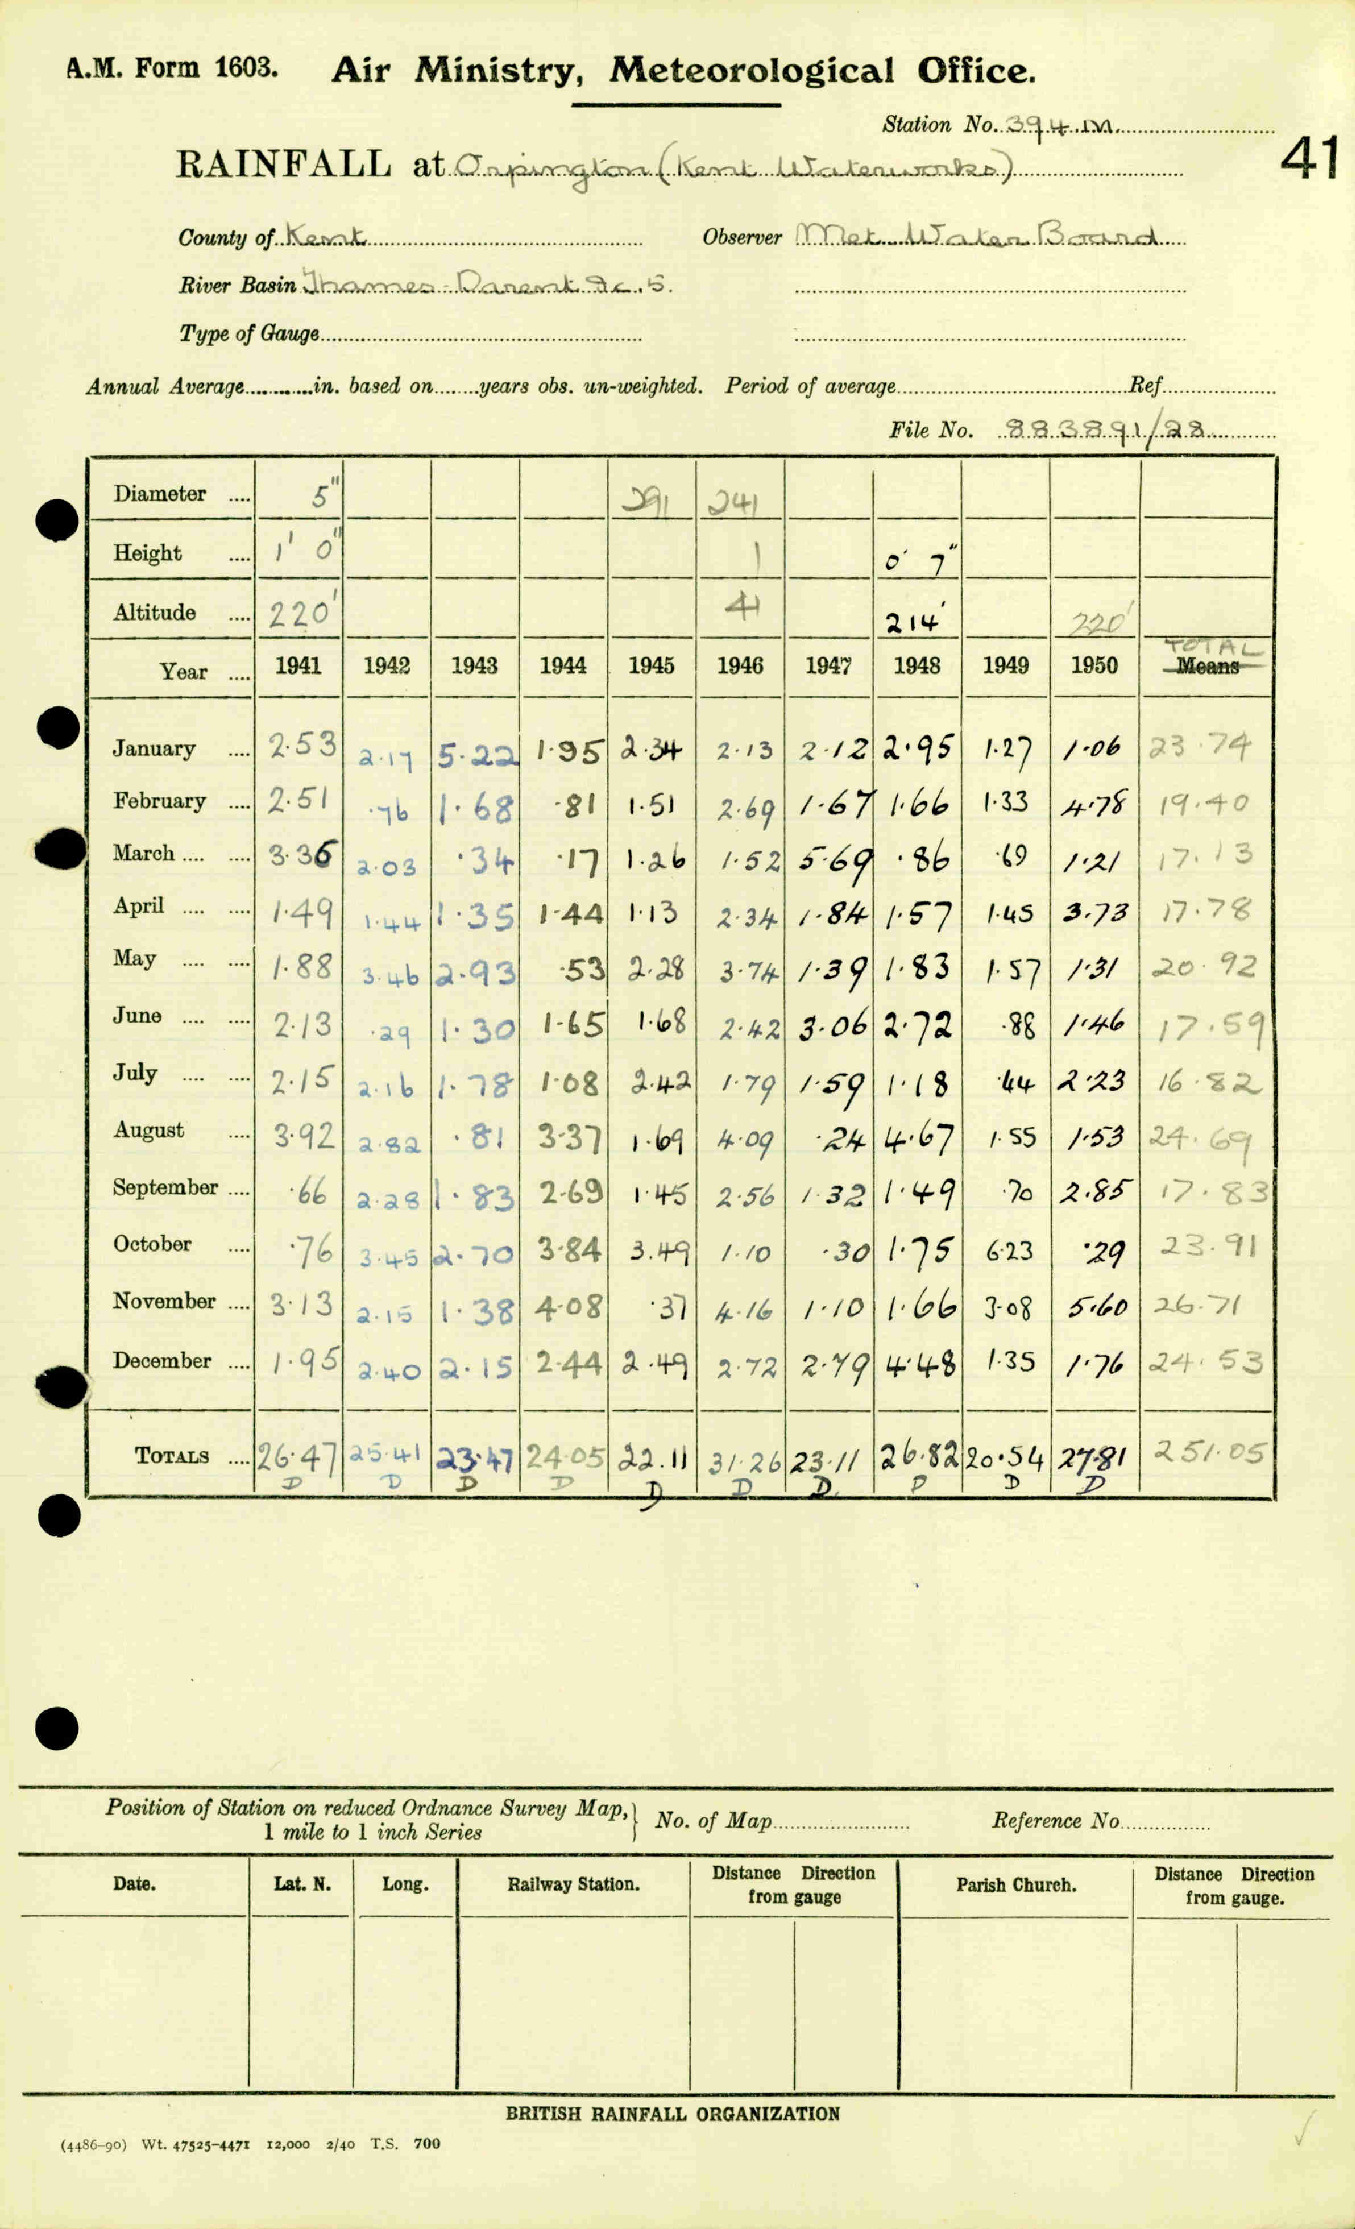 A.M. Form 1603. Air Ministry, Meteorological Office.
Station No. 394.M.
41
RAINFALL at Orpington (Kent Waterworks)
County of Kent Observer Met. Water Board
River Basin Thames - Darent &c. 5.
Type of Gauge
Annual Average in. based on years obs. un-weighted. Period of average Ref
File No. 883891/28
Diameter .... 5" 291 241
Height .... 1' 0" 1 0' 7"
Altitude .... 220' 41 214' 220'
TOTAL
Year .... 1941 1942 1943 1944 1945 1946 1947 1948 1949 1950 Means
January .... 2.53 2.17 5.22 1.95 2.34 2.13 2.12 2.95 1.27 1.06 23.74
February .... 2.51 .76 1.68 .81 1.51 2.69 1.67 1.66 1.33 4.78 19.40
March .... .... 3.36 2.03 .34 .17 1.26 1.52 5.69 .86 .69 1.21 17.13
April .... .... 1.49 1.44 1.35 1.44 1.13 2.34 1.84 1.57 1.45 3.73 17.78
May .... .... 1.88 3.46 2.93 .53 2.28 3.74 1.39 1.83 1.57 1.31 20.92
June .... .... 2.13 .29 1.30 1.65 1.68 2.42 3.06 2.72 .88 1.46 17.59
July .... .... 2.15 2.16 1.78 1.08 2.42 1.79 1.59 1.18 .44 2.23 16.82
August .... 3.92 2.82 .81 3.37 1.69 4.09 .24 4.67 1.55 1.53 24.69
September .... .66 2.28 1.83 2.69 1.45 2.56 1.32 1.49 .70 2.85 17.83
October .... .76 3.45 2.70 3.84 3.49 1.10 .30 1.75 6.23 .29 23.91
November .... 3.13 2.15 1.38 4.08 .37 4.16 1.10 1.66 3.08 5.60 26.71
December .... 1.95 2.40 2.15 2.44 2.49 2.72 2.79 4.48 1.35 1.76 24.53
TOTALS .... 26.47 25.41 23.47 24.05 22.11 31.26 23.11 26.82 20.54 27.81 251.05
D D D D D D D D D D
Position of Station on reduced Ordnance Survey Map, } No. of Map Reference No
1 mile to 1 inch Series
Date. Lat. N. Long. Railway Station. Distance Direction Parish Church. Distance Direction
from gauge from gauge.
BRITISH RAINFALL ORGANIZATION
(4486-90) Wt. 47525-4471 12,000 2/40 T.S. 700